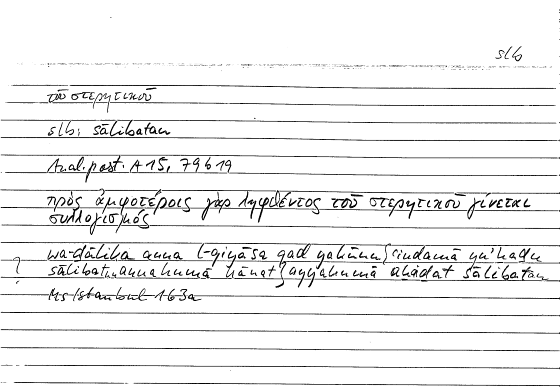 slb
τοῦ στερητικοῦ
slb: sālibatan
Anal. post. A 15, 79b19
πρὸς ἀμφοτέροις γὰρ ληφθέντος τοῦ στερητικοῦ γίνεται
συλλογισμός
wa-ḏālika anna l-qiyāsa qad yakūnu ʿindamā yuʾḫaḏu
? sālibatun annahumā kānat ayyahumā uḫiḏat sālibatan
Ms Istanbul 163a